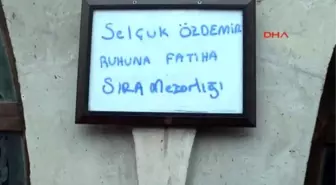 Selçuk ÖZDEMİR
RUHUNA FATİHA
SIRA Mezarlığı
DHA